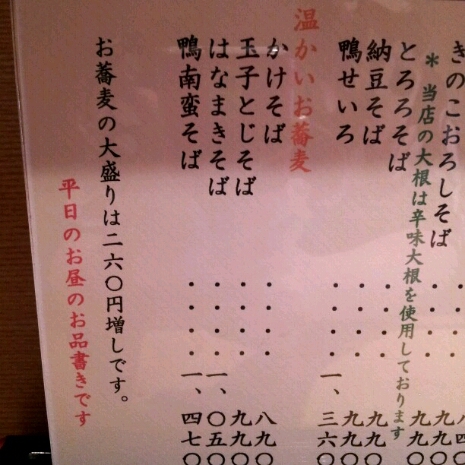 きのこおろしそば・・・・九九〇
＊当店の大根は辛味大根を使用しております
とろろそば・・・・九九〇
納豆そば・・・・九九〇
鴨せいろ・・・・一、三六〇
温かいお蕎麦
かけそば・・・・八九〇
玉子とじそば・・・・九九〇
はなまきそば・・・・一、〇五〇
鴨南蛮そば・・・・一、四七〇
お蕎麦の大盛りは二六〇円増しです。
平日のお昼のお品書きです